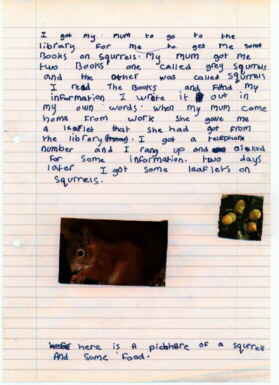 I got my mum to go to the
library for me to get me some
Books on squrrels. My mum got me
two Books one called grey squrrels
and the other was called squrrels
I read The Books and Find my
information I wrote it out in
my own words. when my mum come
home From work she gave me
a leaflet that she had got from
the library. I got a telephone
number and I rang up and asked
for some information. two days
later I got some leaflets on
squrrels.
here is A picture of a squrrel
And some Food.